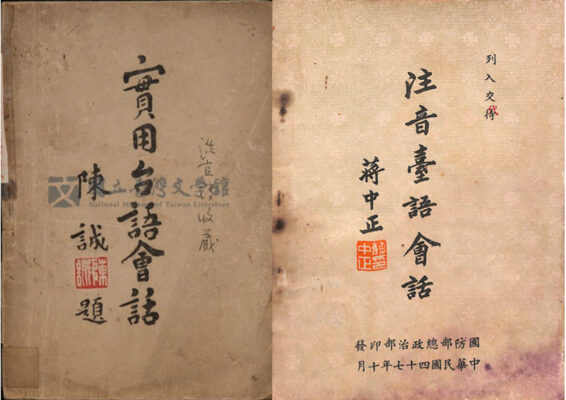 實用台語會話
陳誠題
陳誠
國立台灣文學館
National Museum of Taiwan Literature
收藏
列入交
注音臺語會話
蔣中正
國防部總政治部印發
中華民國四十七年十月